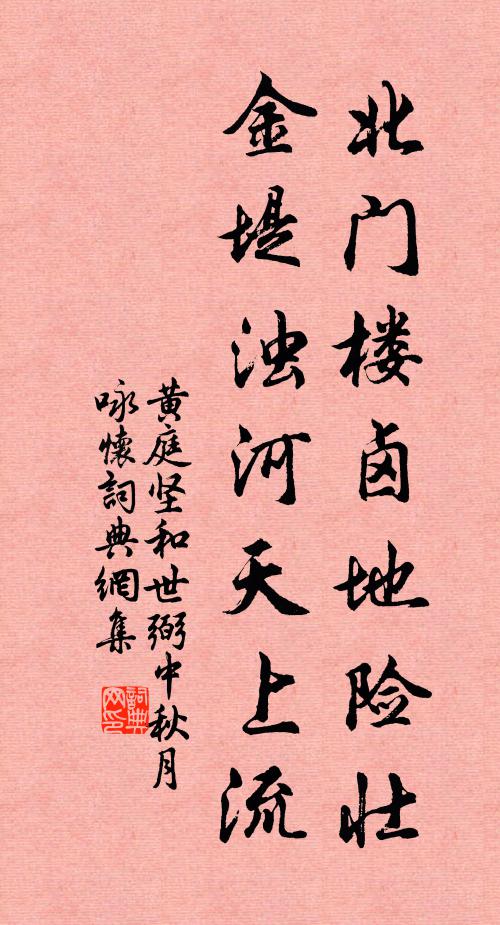 北门楼卤地险壮
金堤浊河天上流
黄庭坚和世弼中秋月
咏懷詞典網集
詞典
网印